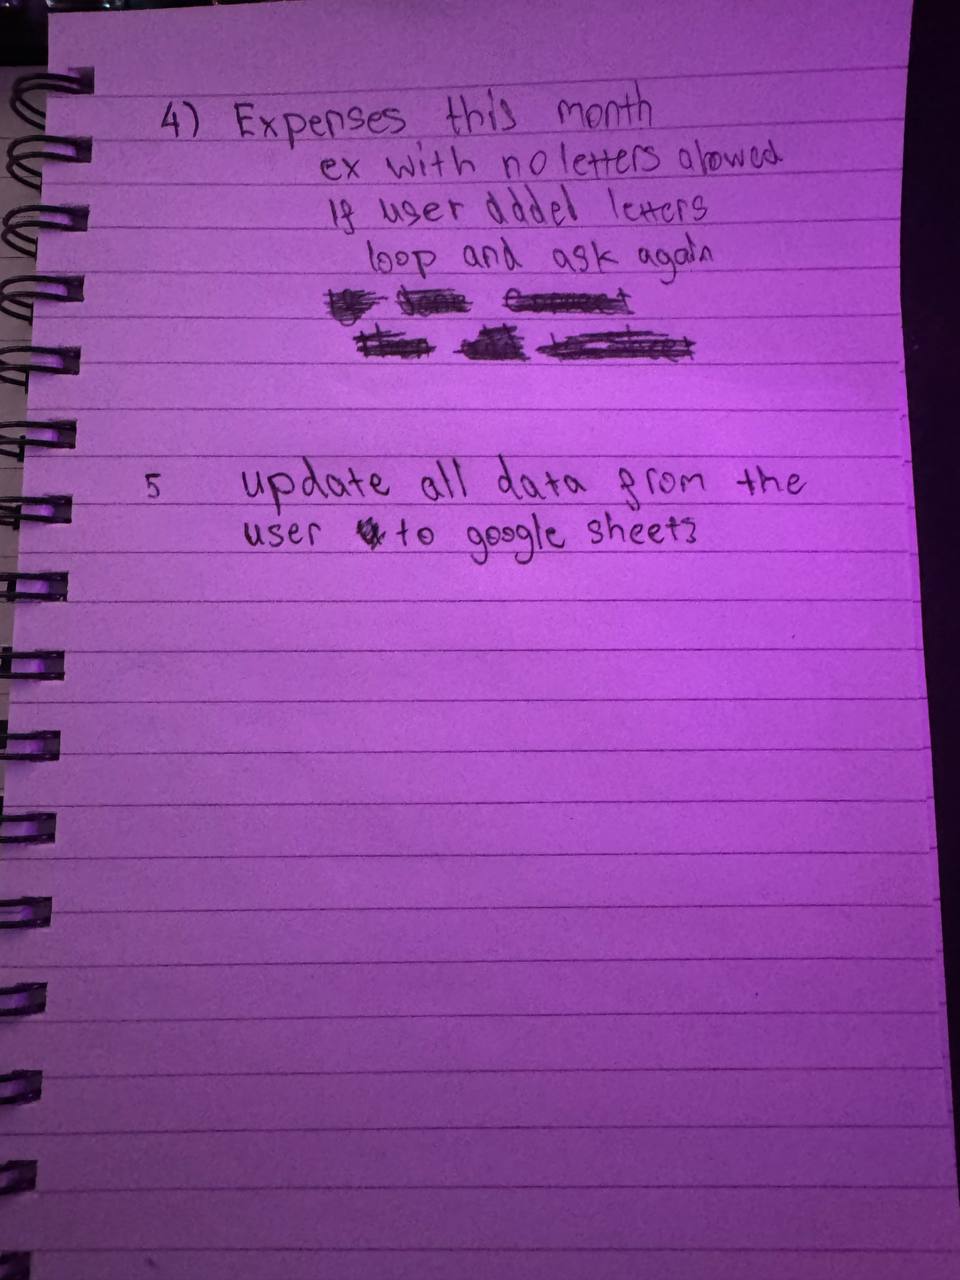 4) Expenses this month
ex with no letters alowed
If user addel letters
loop and ask again
5 update all data from the
user to google sheets